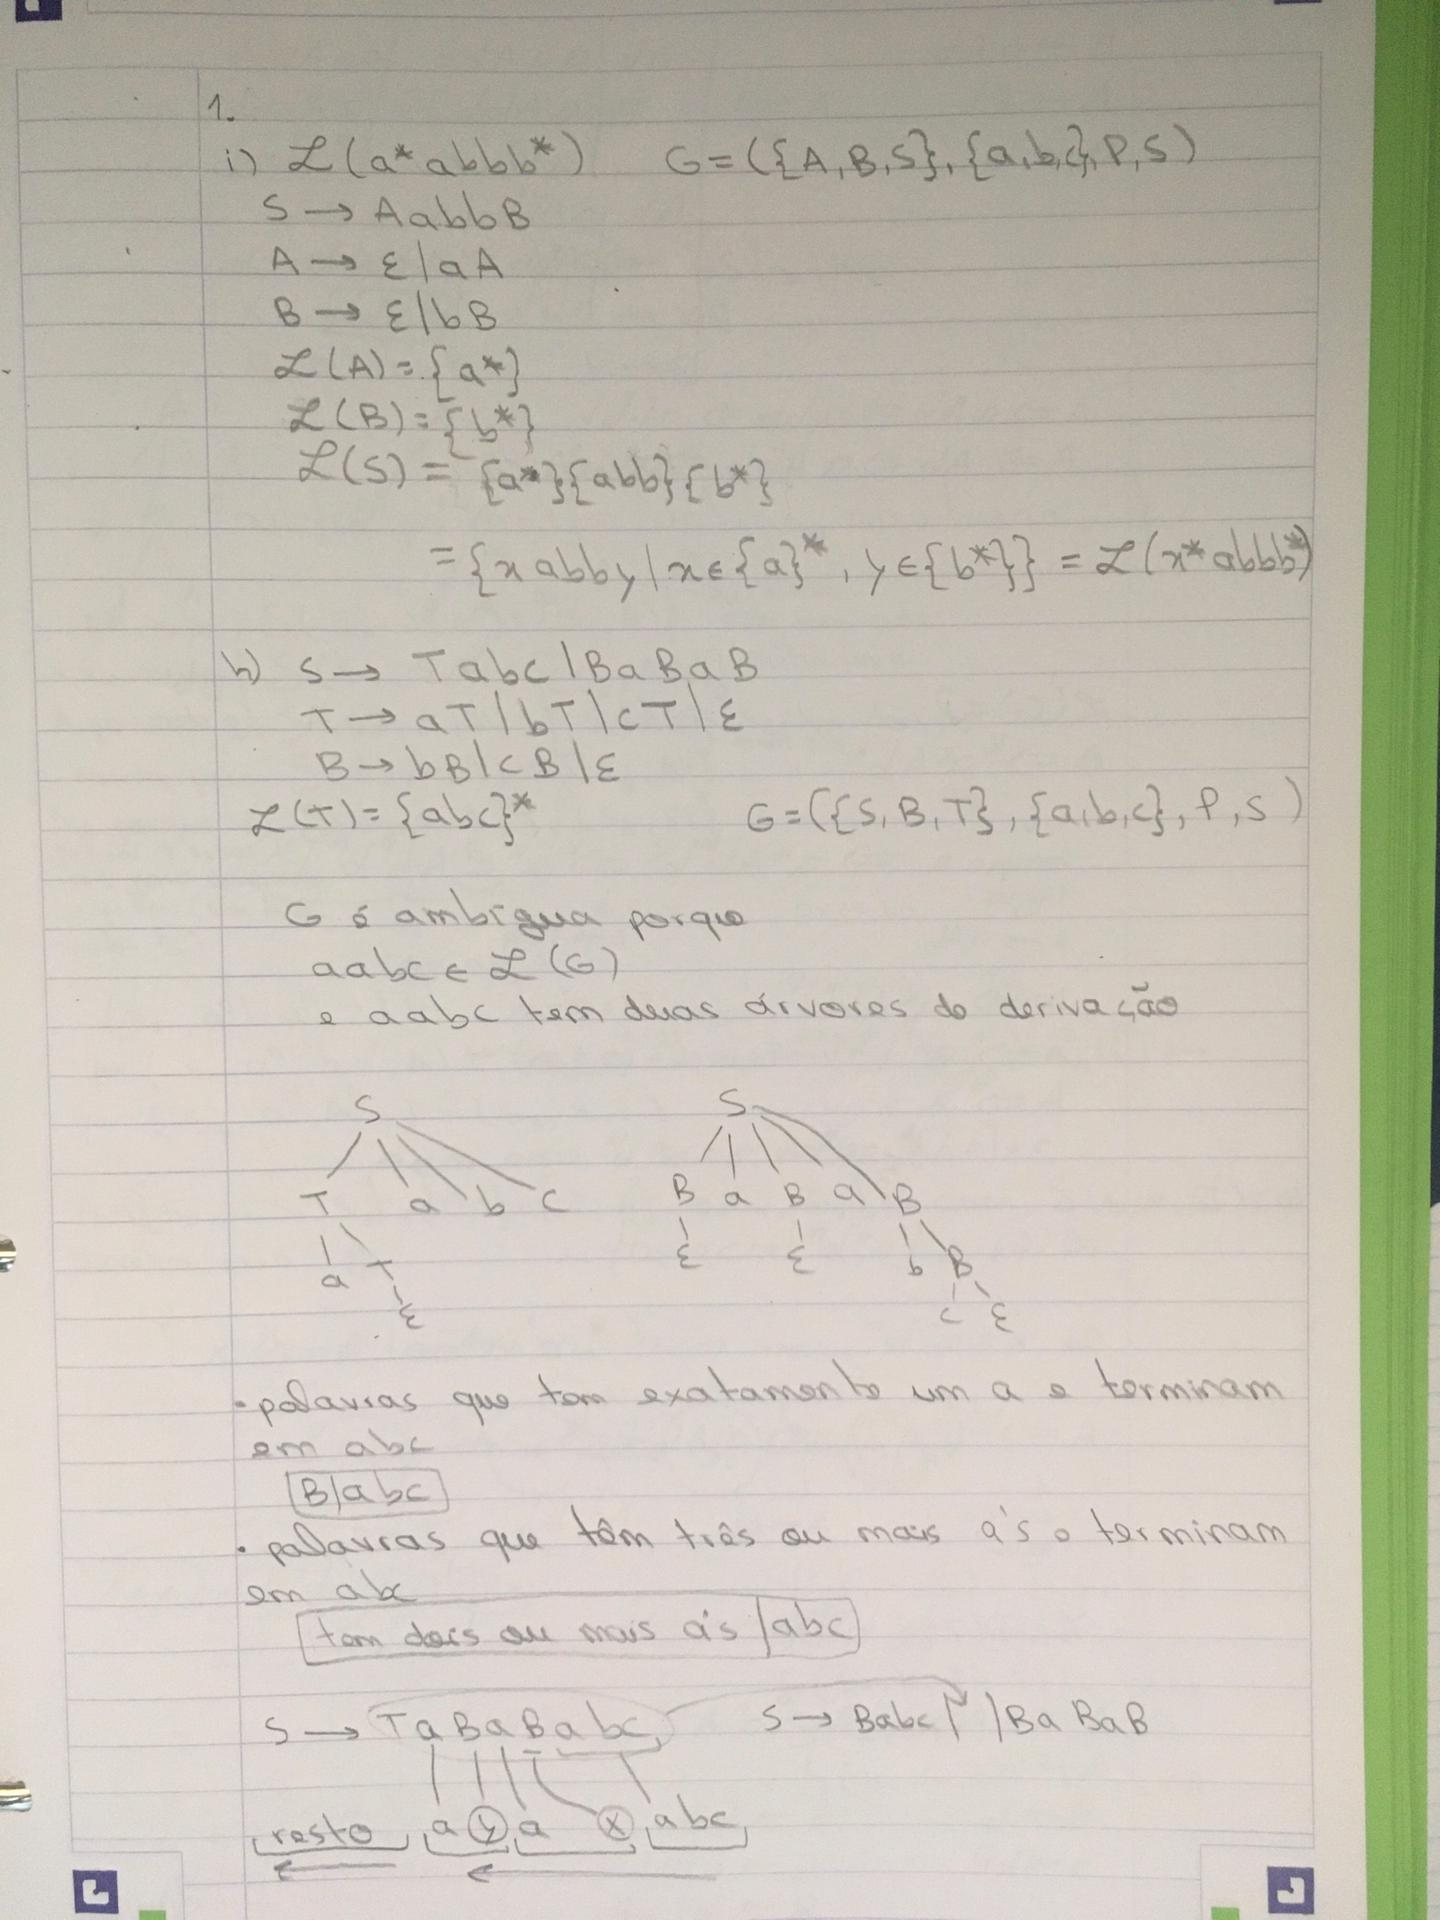 1.
i) ℒ(a*abbb*) G=({A,B,S},{a,b,c},P,S)
S → AabbB
A → ε|aA
B → ε|bB
ℒ(A)={a*}
ℒ(B)={b*}
ℒ(S)= {a*}{abb}{b*}
={xabby|x∈{a}*, y∈{b*}} = ℒ(x*abbb*)
b) S → Tabc|BaBaB
T → aT|bT|cT|ε
B → bB|cB|ε
ℒ(T)={abc}* G=({S,B,T},{a,b,c},P,S)
G é ambígua porque
aabc ∈ ℒ(G)
e aabc tem duas árvores de derivação
S S
T a b c B a B a B
a T ε ε b B
ε c ε
• palavras que tem exatamente um a e terminam
em abc
B|abc
• palavras que têm três ou mais a's e terminam
em abc
tem dois ou mais a's |abc
S → TaBaBabc S → Babc| |BaBaB
resto a y a x abc